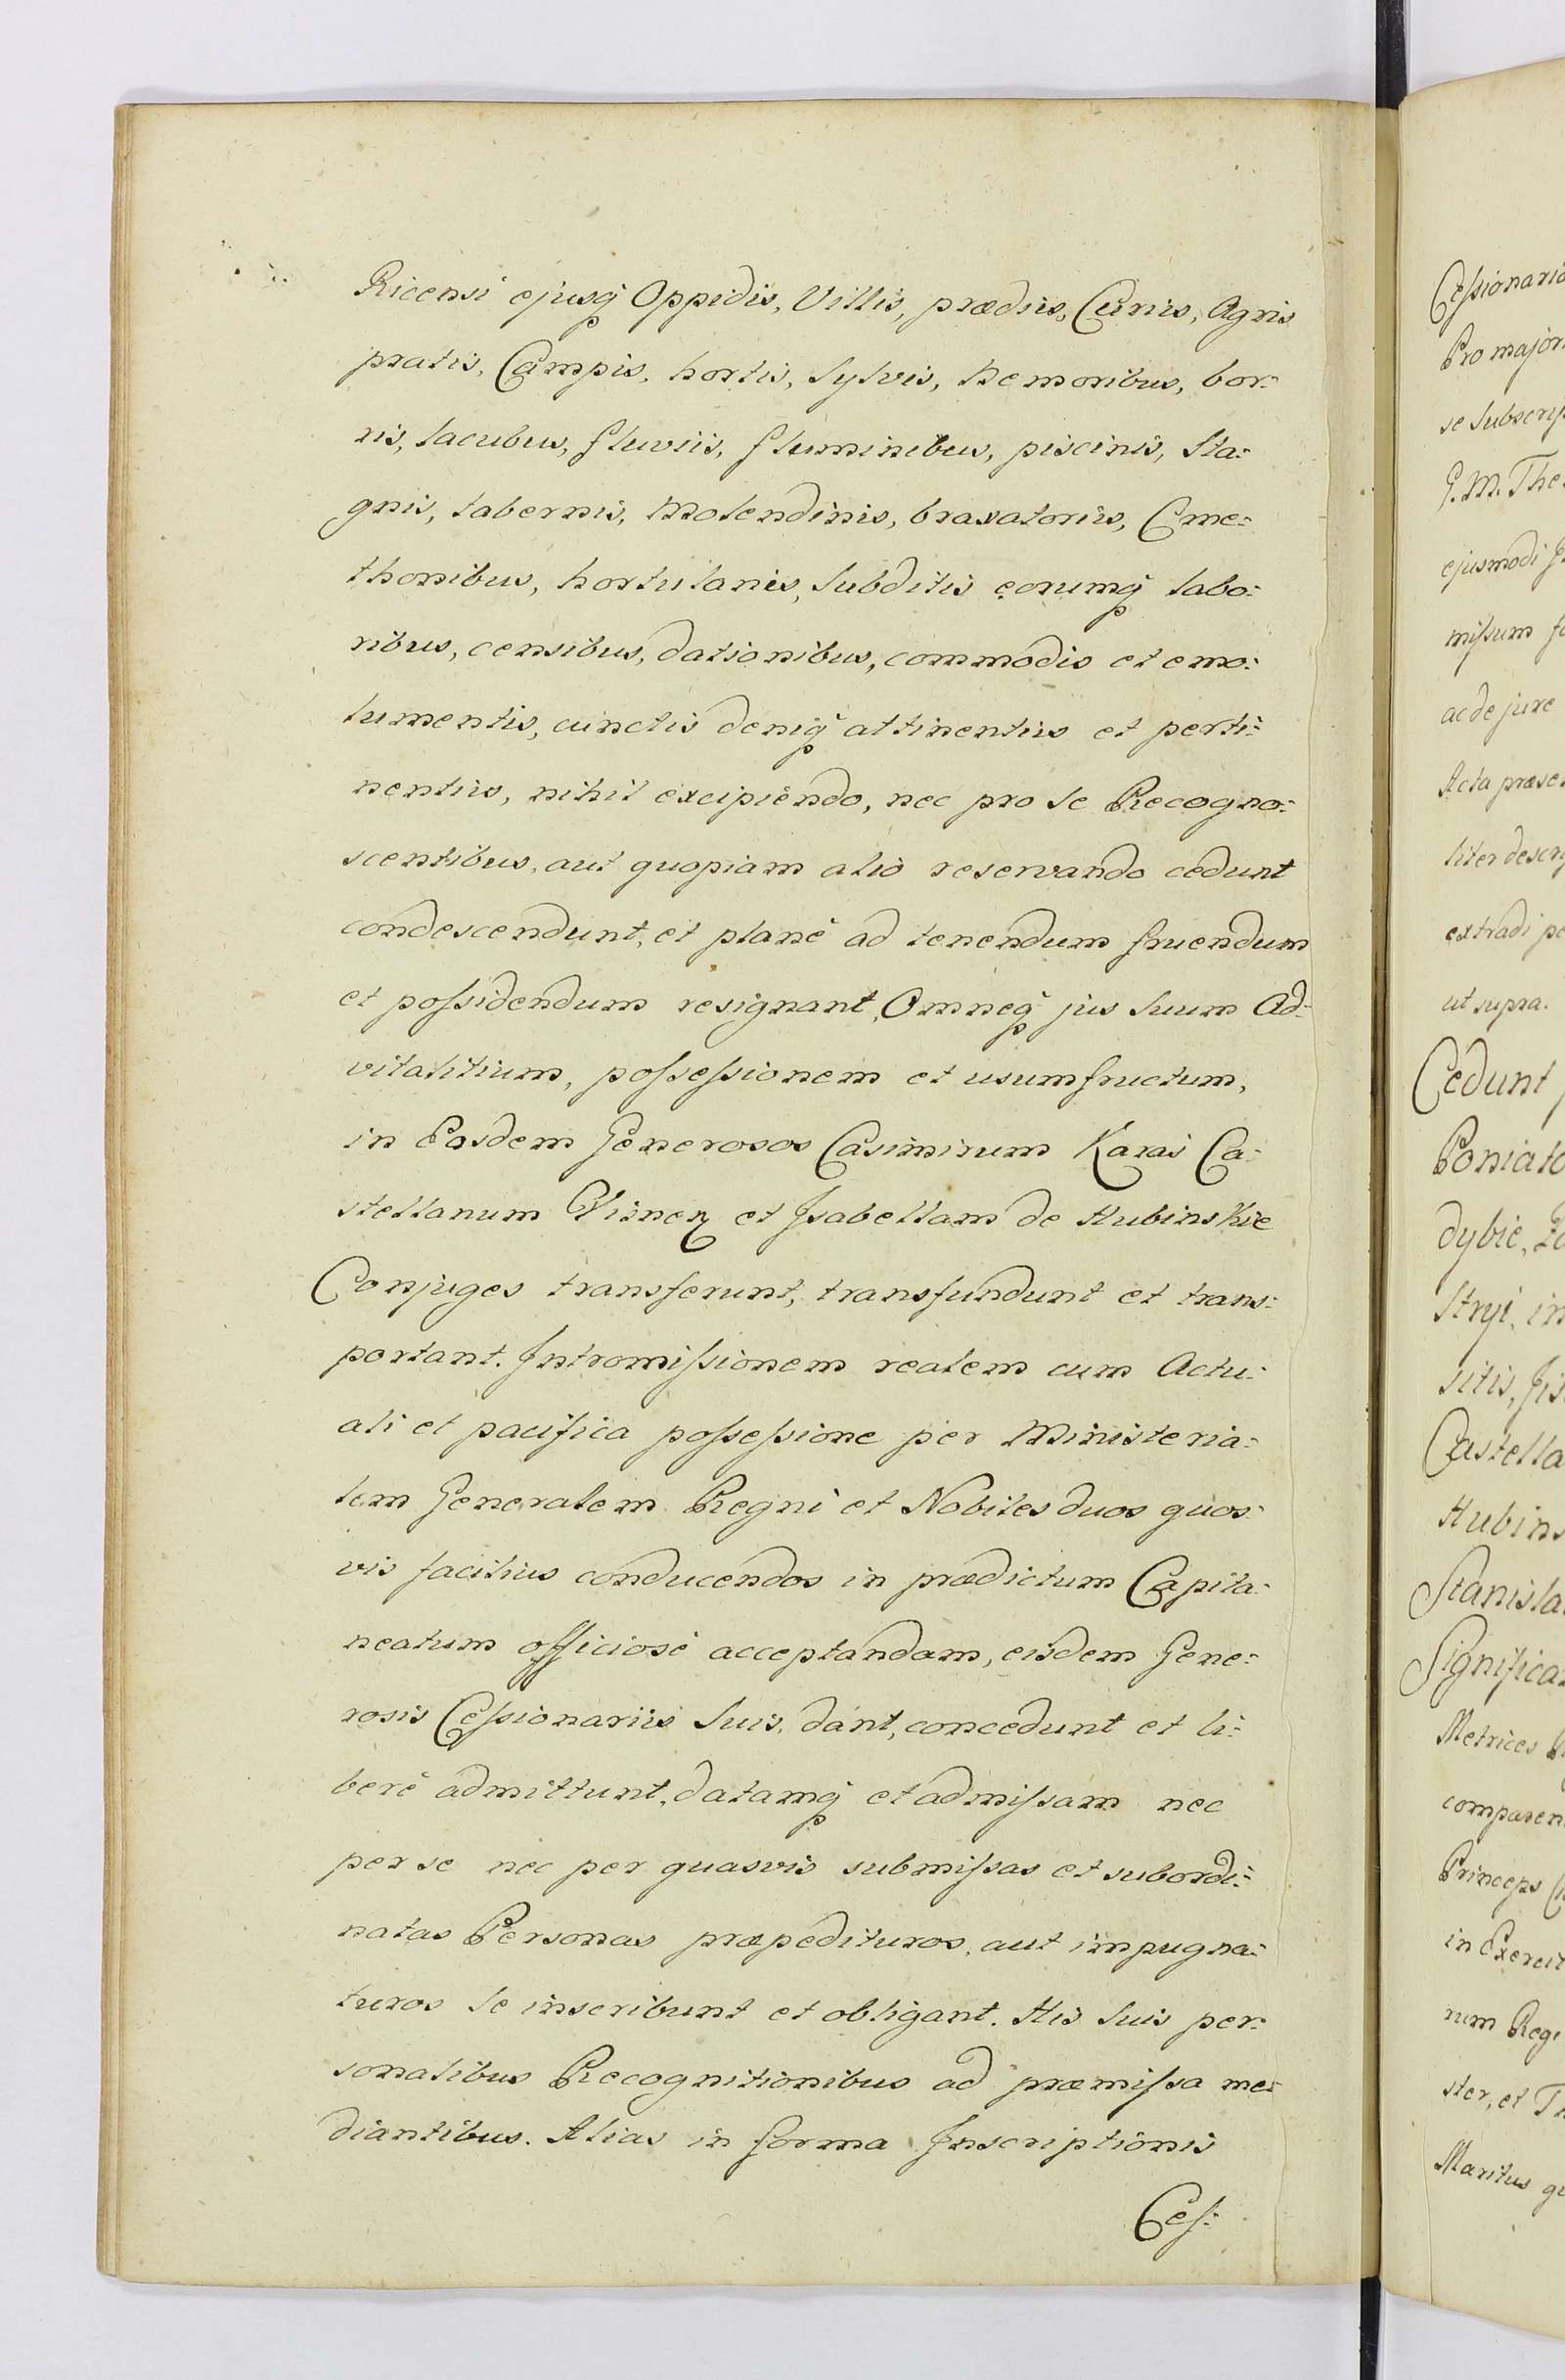 Ricensi ejusq́ Oppidis, Villis, prædiis, Curiis, Agris
pratis, Campis, hortis, Sylvis, Nemoribus, bor:
ris, lacubus, fluviis, fluminibus, piscinis, Sta:
gnis, tabernis, Molendinis, braxatoriis, Cme:
thonibus, hortulanis, Subditis eorumq́ labo:
ribus, censibus, dationibus, commodis et emo:
lumentis, cunctis deniq́ attinentiis et perti:
nentiis, nihil excipiendo, nec pro se Recogno:
scentibus, aut quopiam alio reservando cedunt
condescendunt, et planè ad tenendum fruendum
et poſsidendum resignant, Omneq́ jus Suum Ad:
vitalitium, poſseſsionem et usumfructum,
in Eosdem Generosos Casimirum Karas Ca:
stellanum Visnen et Isabellam de Hubinskie
Conjuges transferunt, transfundunt et trans:
portant. Intromiſsionem realem cum Actu:
ali et pacifica poſseſsione per Ministeria:
lem Generalem Regni et Nobiles duos quos:
vis facilius conducendos in prædictum Capita:
neatum officiosè acceptandam, eisdem Gene:
rosis Ceſsionariis Suis, dant, concedunt et li:
berè admittunt, datamq́ et admiſsam nec
per se nec per quasvis submiſsas et subordi:
natas Personas præpedituros, aut impugna:
turos Se inscribunt et obligant. His Suis per:
sonalibus Recognitionibus ad præmiſsa me:
diantibus. Alias in forma Inscriptionis
Ceſ:
Ceſsionario
Pro major
se Subscrip
G. M. The
ejusmodi
miſsum
ac de jure
Acta præse
liter descr
extradi
ut supra.
Cedunt
Poniato
dybie,
Stryi, in
sitis,
Castella
Hubins
Stanisla
Significa
Metrices
comparen
Princeps
in Exercit
rum Reg
ster, et
Maritus